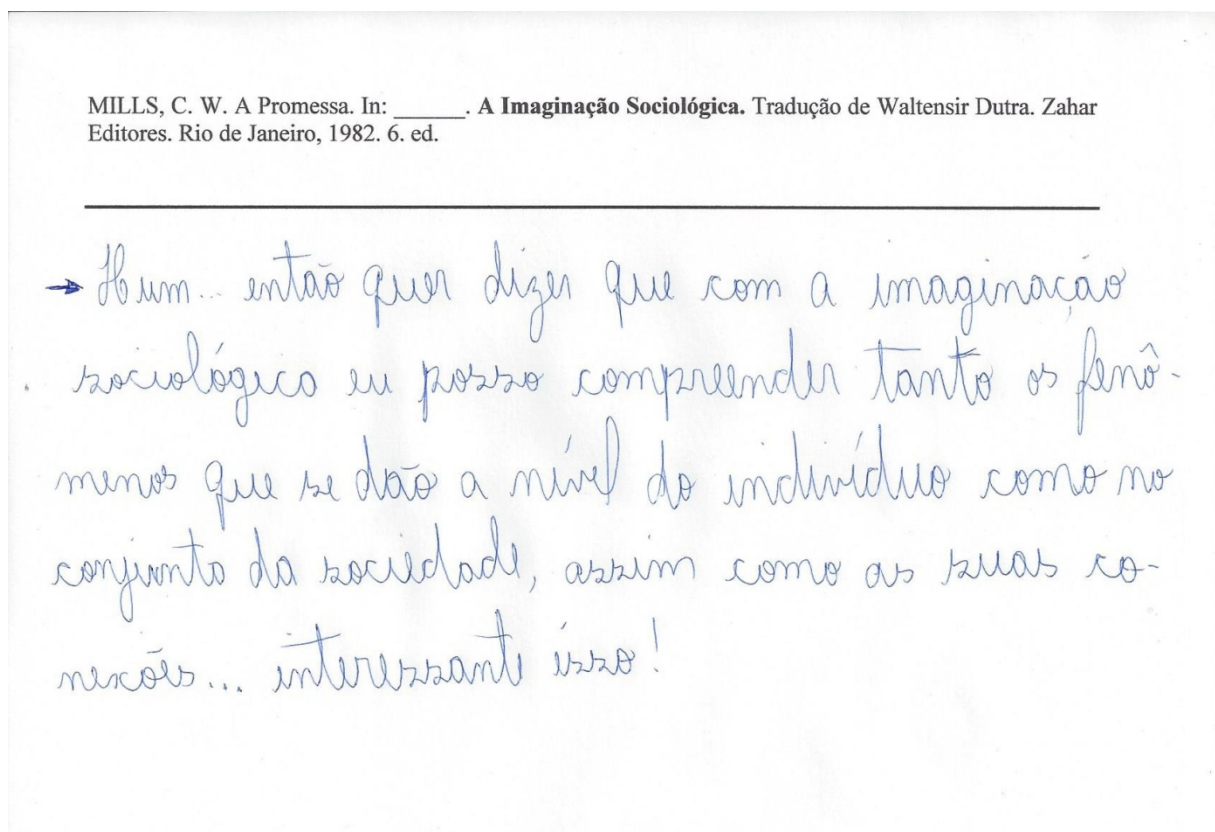 MILLS, C. W. A Promessa. In: ______. A Imaginação Sociológica. Tradução de Waltensir Dutra. Zahar
Editores. Rio de Janeiro, 1982. 6. ed.
→ Hum... então quer dizer que com a imaginação
sociológica eu posso compreender tanto os fenô-
menos que se dão a nível do indivíduo como no
conjunto da sociedade, assim como as suas co-
nexões... interessante isso!